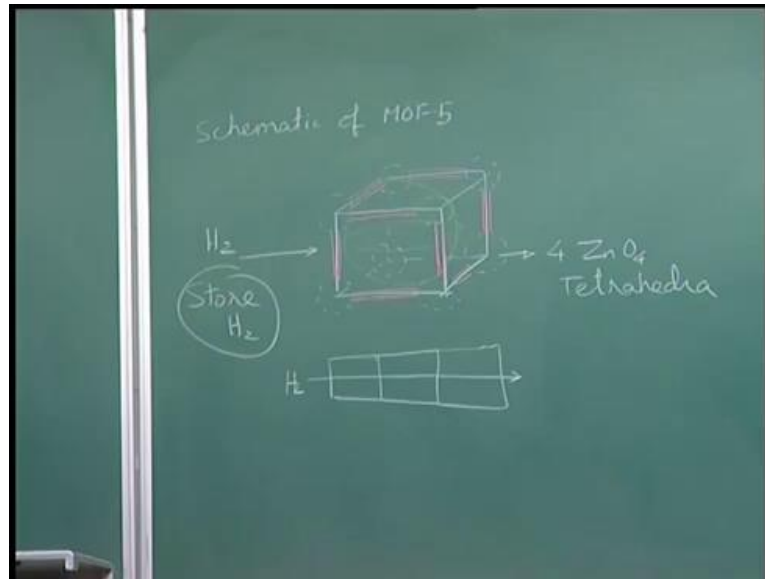 Schematic of MOF-5
H₂
4 ZnO₄
Tetrahedra
Store
H₂
H₂